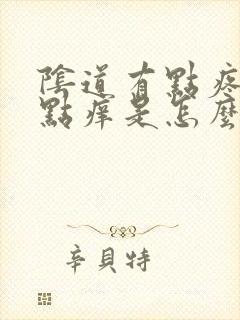 陰道有點疼
點癢是怎麼
辛貝特